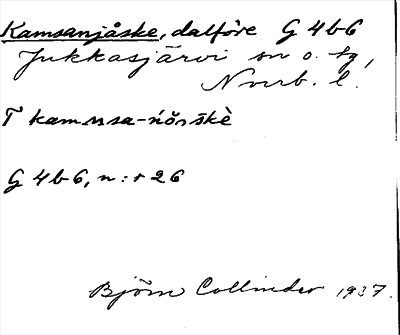 Kamsanjåske, dalföre G 4b6
Jukkasjärvi sn o. tg,
Norrb. l.
T kamssa-ńŏrskè
G 4b6, n:r 26
Björn Collinder 1937.